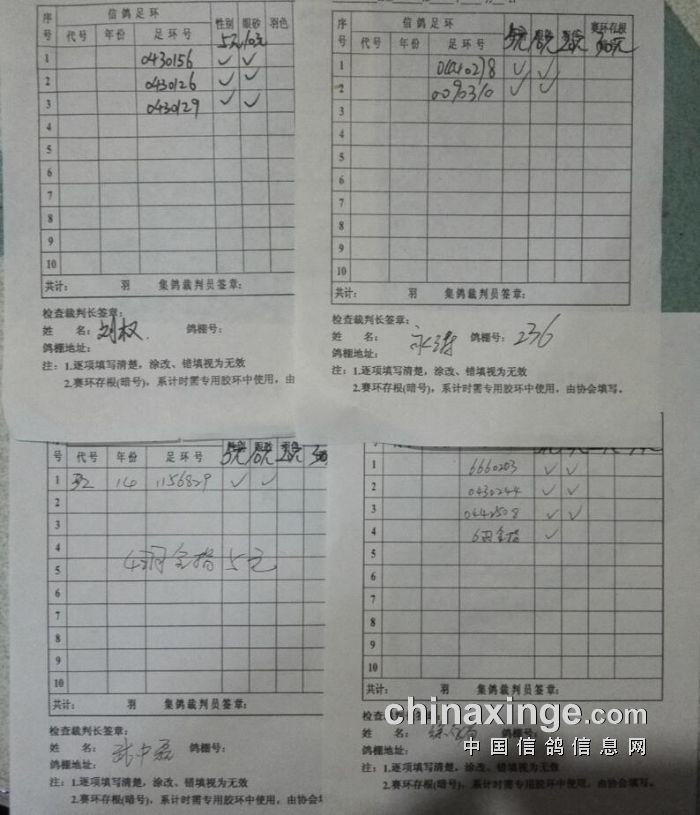 序号 信鸽足环 性别 眼砂 羽色
代号 年份 足环号 5元 10元
1 0430156 ✓ ✓
2 0430126 ✓ ✓
3 0430129 ✓ ✓
4
5
6
7
8
9
10
共计： 羽 集鸽裁判员签章：
检查裁判长签章：
姓 名：刘权 鸽棚号：
鸽棚地址：
注：1.逐项填写清楚，涂改、错填视为无效
2.赛环存根(暗号)，系计时需专用胶环中使用，由
序号 信鸽足环 赛环存根
代号 年份 足环号 5元 10元 20元
1 ✓ ✓
2 0090310 ✓ ✓
3
4
5
6
7
8
9
10
共计： 羽 集鸽裁判员签章：
检查裁判长签章：
姓 名： 鸽棚号：236
鸽棚地址：
注：1.逐项填写清楚，涂改、错填视为无效
2.赛环存根(暗号)，系计时需专用胶环中使用，由协会填写。
号 代号 年份 足环号
1 14 1156829 ✓ ✓
2
3
4
5 4羽全指5元
6
7
8
9
10
共计： 羽 集鸽裁判员签章：
检查裁判长签章：
姓 名： 鸽棚号：
鸽棚地址：
注：1.逐项填写清楚，涂改、错填视为无效
2.赛环存根(暗号)，系计时需专用胶环中使用，由协会
号 代号 年份 足环号
1 6660203 ✓ ✓
2 0430244 ✓ ✓
3 0442508 ✓ ✓
4 6羽全指 ✓
5
6
7
8
9
10
共计： 羽 集鸽裁判员签章：
检查裁判长签章：
姓 名： 鸽棚号：
鸽棚地址：
注：1.逐项填写清楚，涂改、错填视为无效
2.赛环存根(暗号)，系计时需专用胶环中使用，由协会填写。
chinaxinge.com
中国信鸽信息网